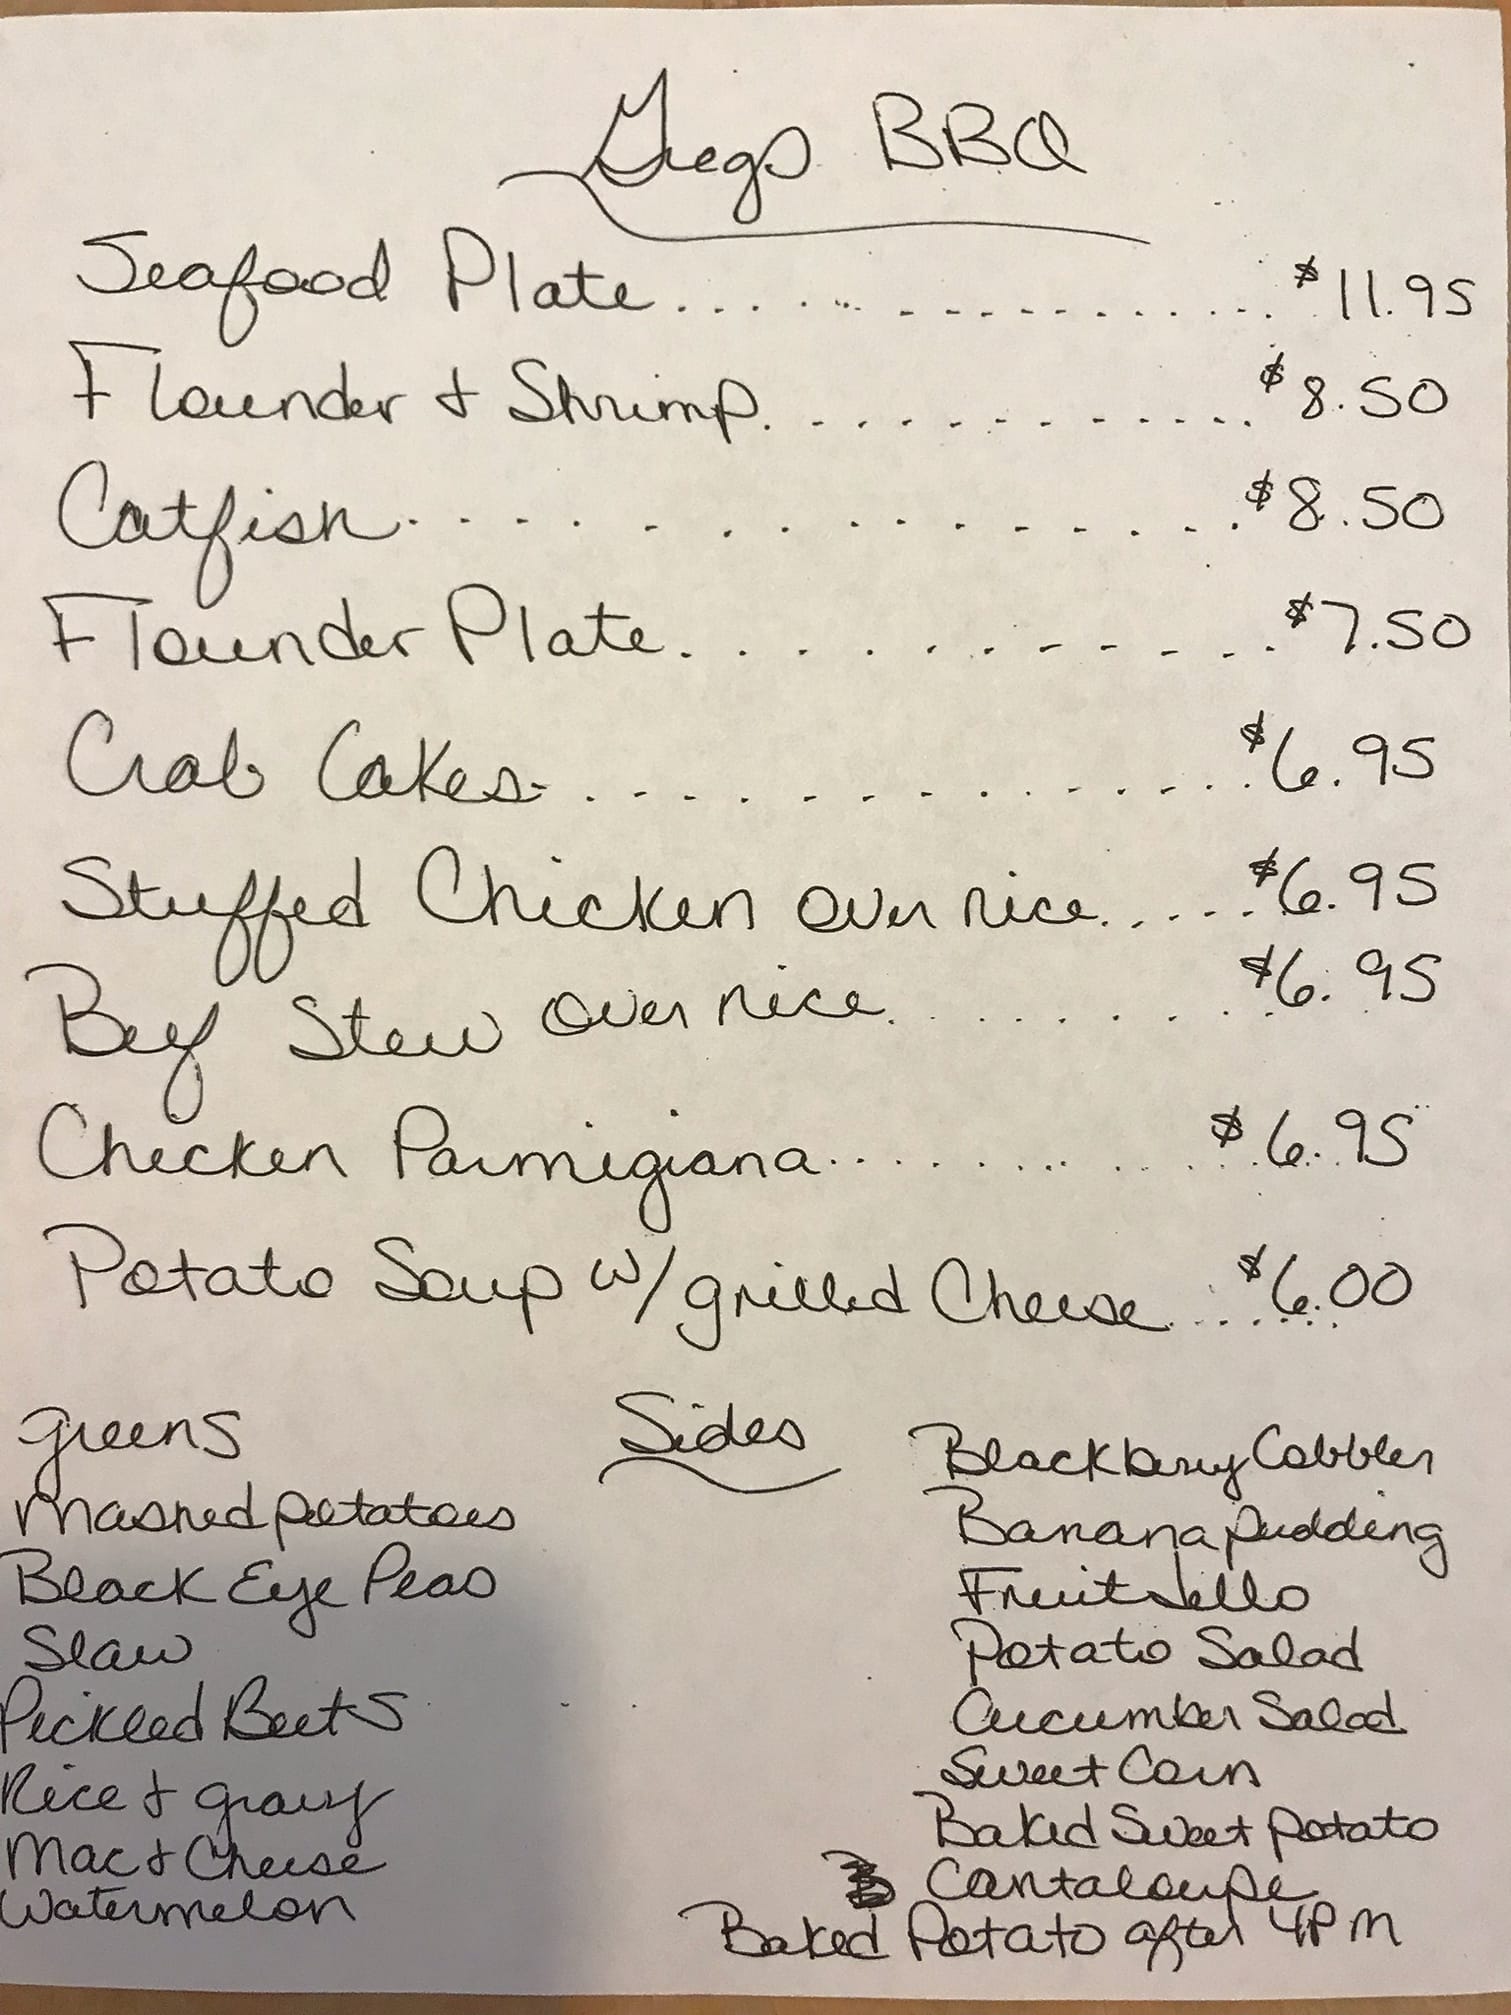 Gregs BBQ
Seafood Plate.................. $11.95
Flounder & Shrimp............. $8.50
Catfish................. $8.50
Flounder Plate............ $7.50
Crab Cakes............... $6.95
Stuffed Chicken over rice....... $6.95
Beef Stew over rice.......... $6.95
Chicken Parmigiana............ $6.95
Potato Soup w/ grilled Cheese....... $6.00
Sides
Greens
Mashed potatoes
Black Eye Peas
Slaw
Pickled Beets
Rice & gravy
Mac & Cheese
Watermelon
Blackberry Cobbler
Banana pudding
Fruit Jello
Potato Salad
Cucumber Salad
Sweet Corn
Baked Sweet potato
Cantaloupe
Baked Potato after 4PM